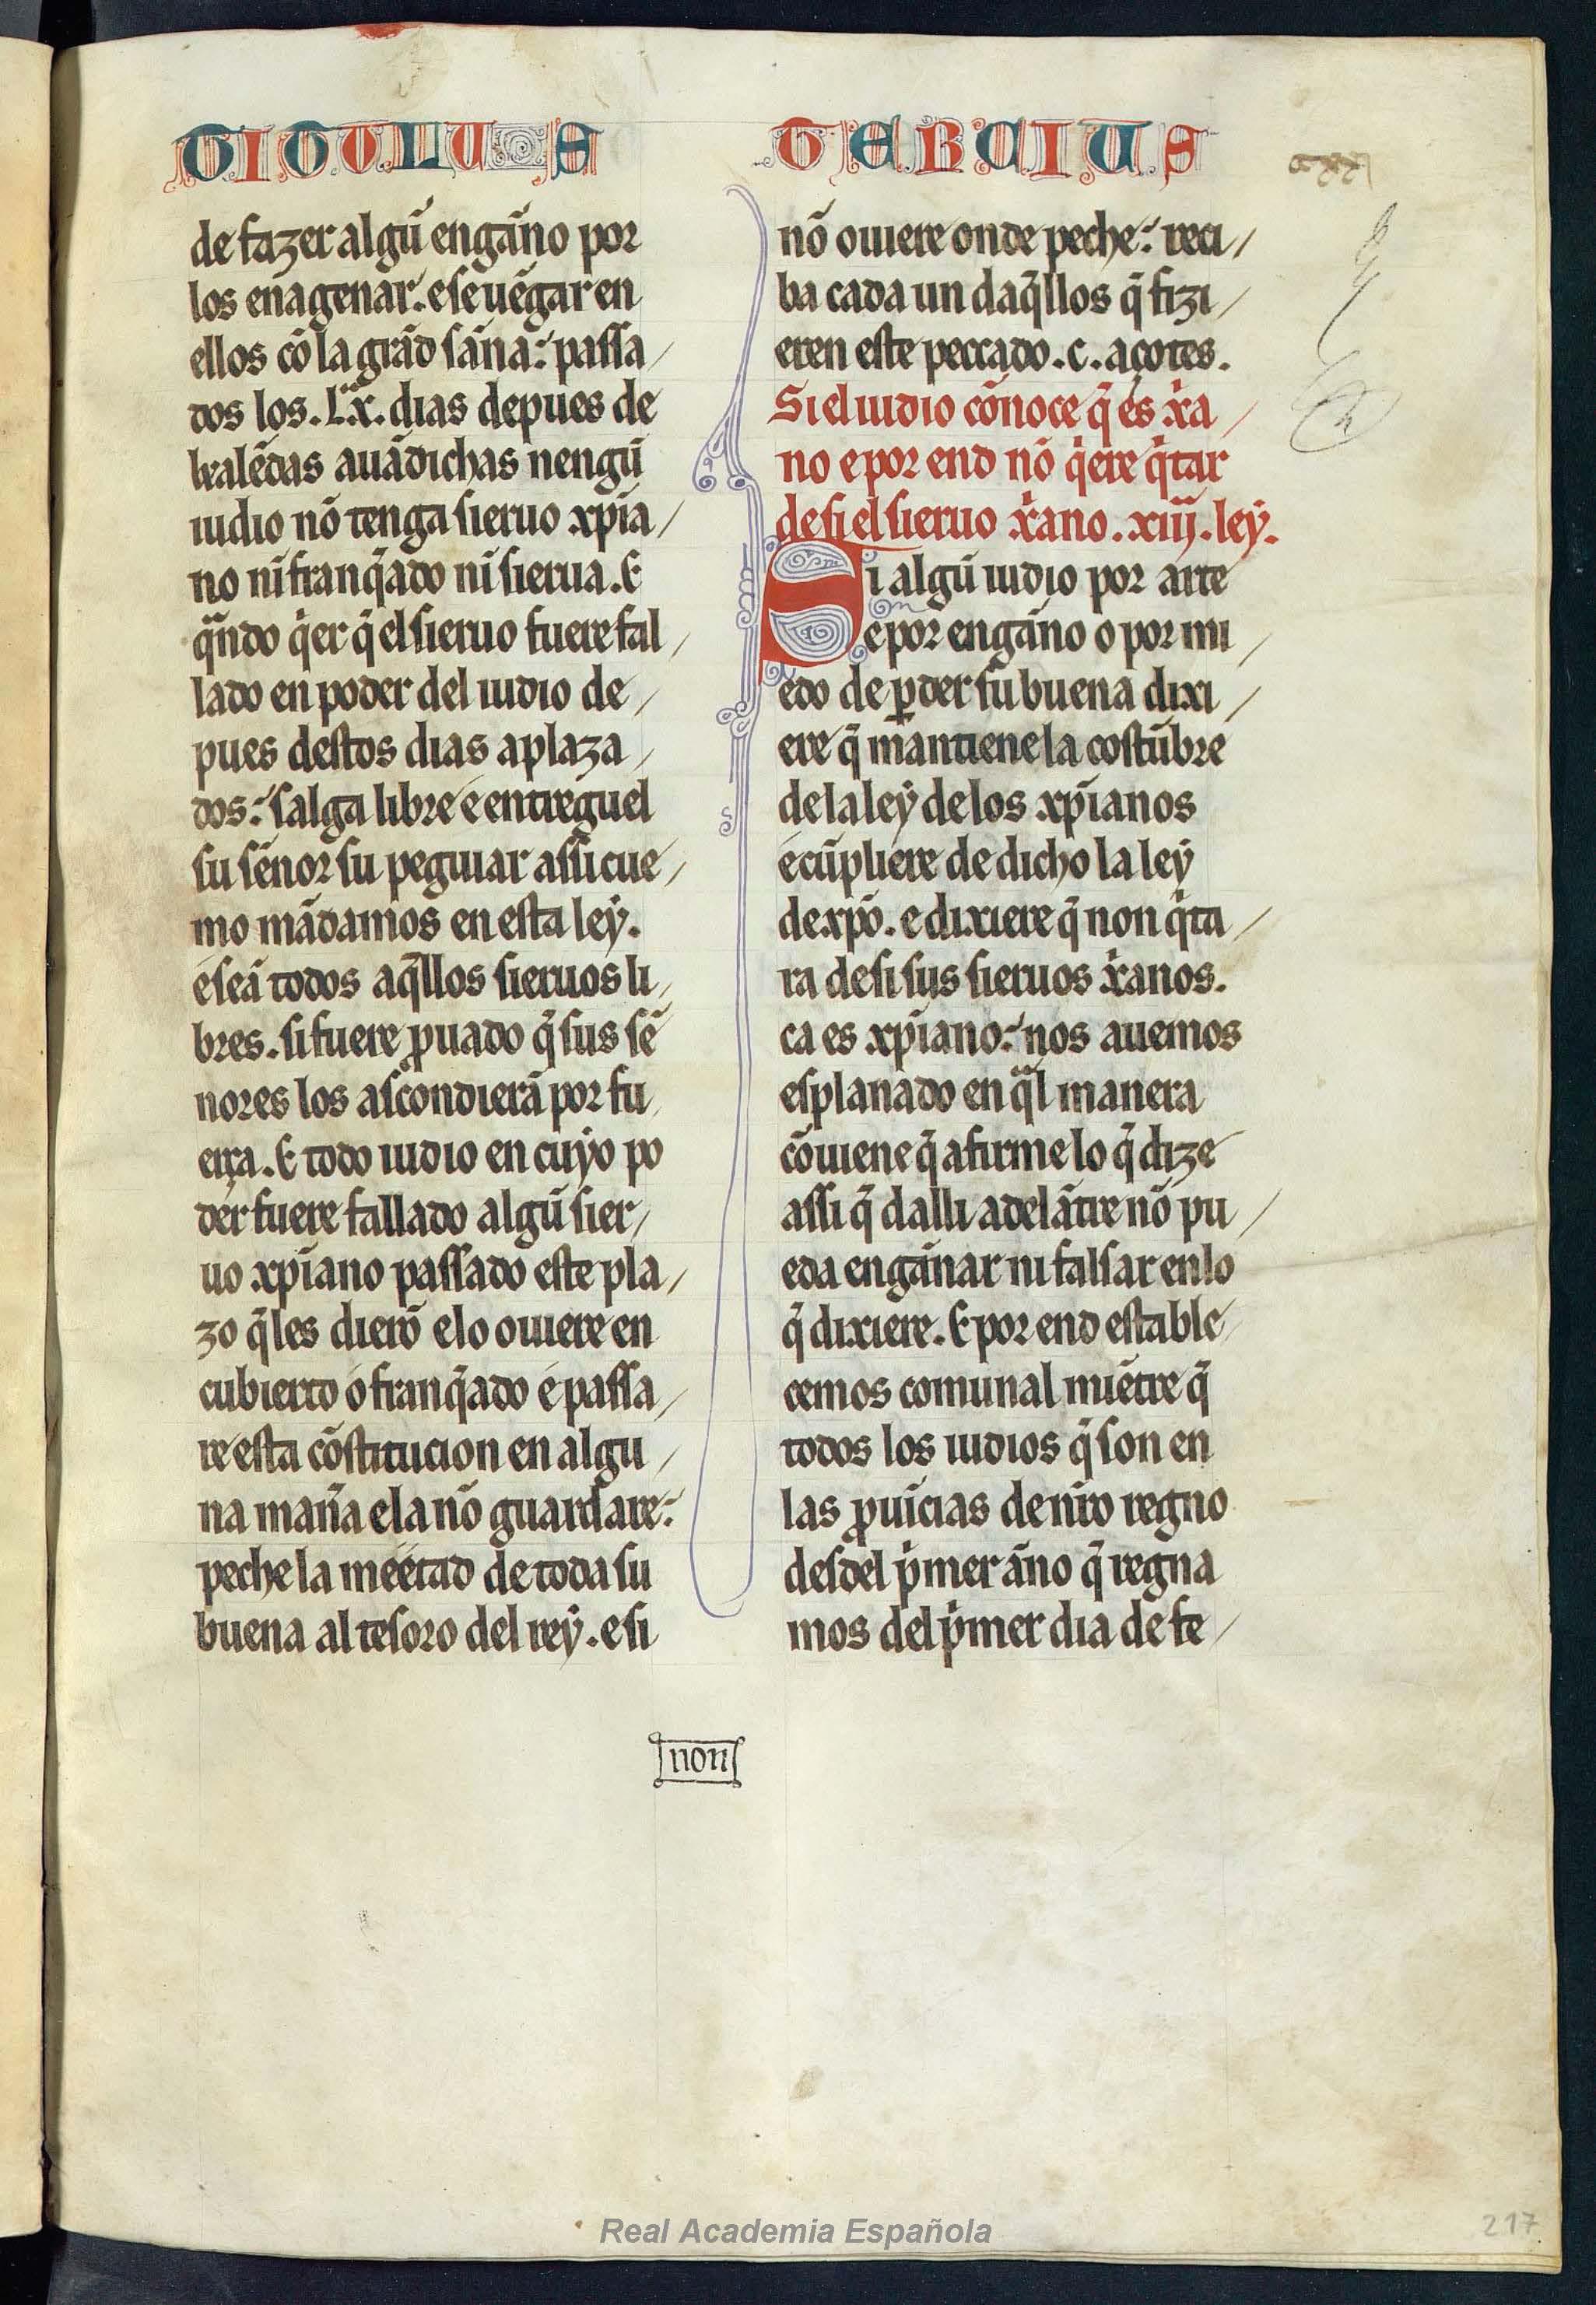 TITULUS TERCIUS
de fazer algũ engãno por
los enagenar. e se uẽgar en
ellos cõ la grãd sãna: passa/
dos los. Lx. dias depues de
kalẽdas auãdichas nengũ
iudio nõ tenga sieruo xp̃ia/
no ni franq̃ado ni sierua. E
q̃ndo q̃er q̃ el sieruo fuere fal/
lado en poder del iudio de/
pues destos dias aplaza/
dos: salga libre e entreguel
su sẽnor su peguiar assi cue/
mo mãdamos en esta leẏ.
e seã todos aq̃llos sieruos li/
bres. si fuere ꝓuado q̃ sus sẽ
nores los ascondierã por fu/
erça. E todo iudio en cuẏo po
der fuere fallado algũ sier/
uo xp̃iano passado este pla/
zo q̃les dierõ e lo ouiere en
cubierto o franq̃ado e passa/
re esta cõstitucion en algu/
na mañа e la nõ guardare:
peche la meetad de toda su
buena al tesoro del reẏ. e si
nõ ouiere onde peche: reci/
ba cada un daq̃llos q̃ fizi/
eren este peccado. c. açotes.
Si el iudio cõnoce q̃ es x̃a/
no e por end nõ q̃ere q̃tar
de si el sieruo x̃ano. xiij. leẏ.
Si algũ iudio por arte
e por engãno o por mi/
edo de ꝑder su buena dixi/
ere q̃ mãntiene la costũbre
de la leẏ de los xp̃ianos
e cũpliere de dicho la leẏ
de xp̃o. e dixiere q̃ non q̃ta/
ra de si sus sieruos x̃anos.
ca es xp̃iano: nos auemos
esplanado en q̃l manera
cõuiene q̃ afirme lo q̃ dize
assi q̃ dalli adelãtre nõ pu/
eda engãnar ni falsar en lo
q̃ dixiere. E por end estable/
cemos comunal miẽtre q̃
todos los iudios q̃ son en
las ꝓuĩcias de nr̃o regno
desdel p̃mer ãno q̃ regna
mos del p̃mer dia de fe/
non
Real Academia Española
217